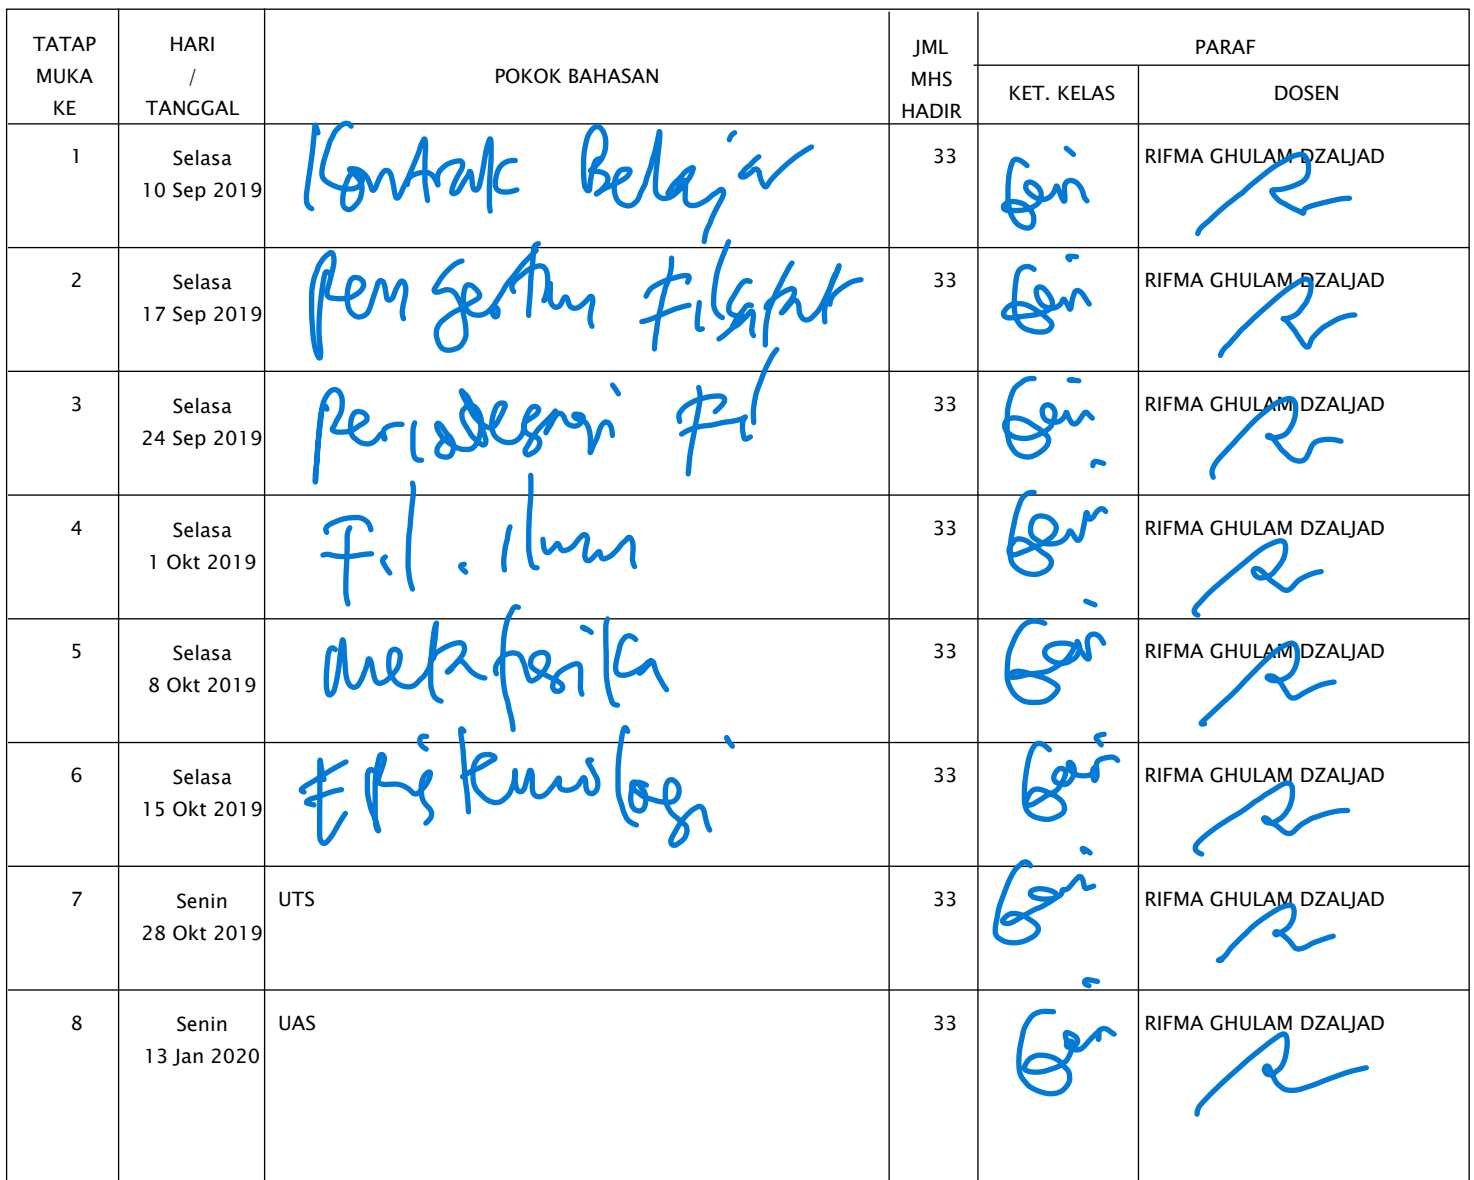 TATAP MUKA KE
HARI / TANGGAL
POKOK BAHASAN
JML MHS HADIR
PARAF
KET. KELAS
DOSEN
1
Selasa
10 Sep 2019
Kontrak Belajar
33
RIFMA GHULAM DZALJAD
2
Selasa
17 Sep 2019
Pengertian Filsafat
33
RIFMA GHULAM DZALJAD
3
Selasa
24 Sep 2019
Periodesasi Fil
33
RIFMA GHULAM DZALJAD
4
Selasa
1 Okt 2019
Fil. Ilmu
33
RIFMA GHULAM DZALJAD
5
Selasa
8 Okt 2019
Metafisika
33
RIFMA GHULAM DZALJAD
6
Selasa
15 Okt 2019
Epistemologi
33
RIFMA GHULAM DZALJAD
7
Senin
28 Okt 2019
UTS
33
RIFMA GHULAM DZALJAD
8
Senin
13 Jan 2020
UAS
33
RIFMA GHULAM DZALJAD